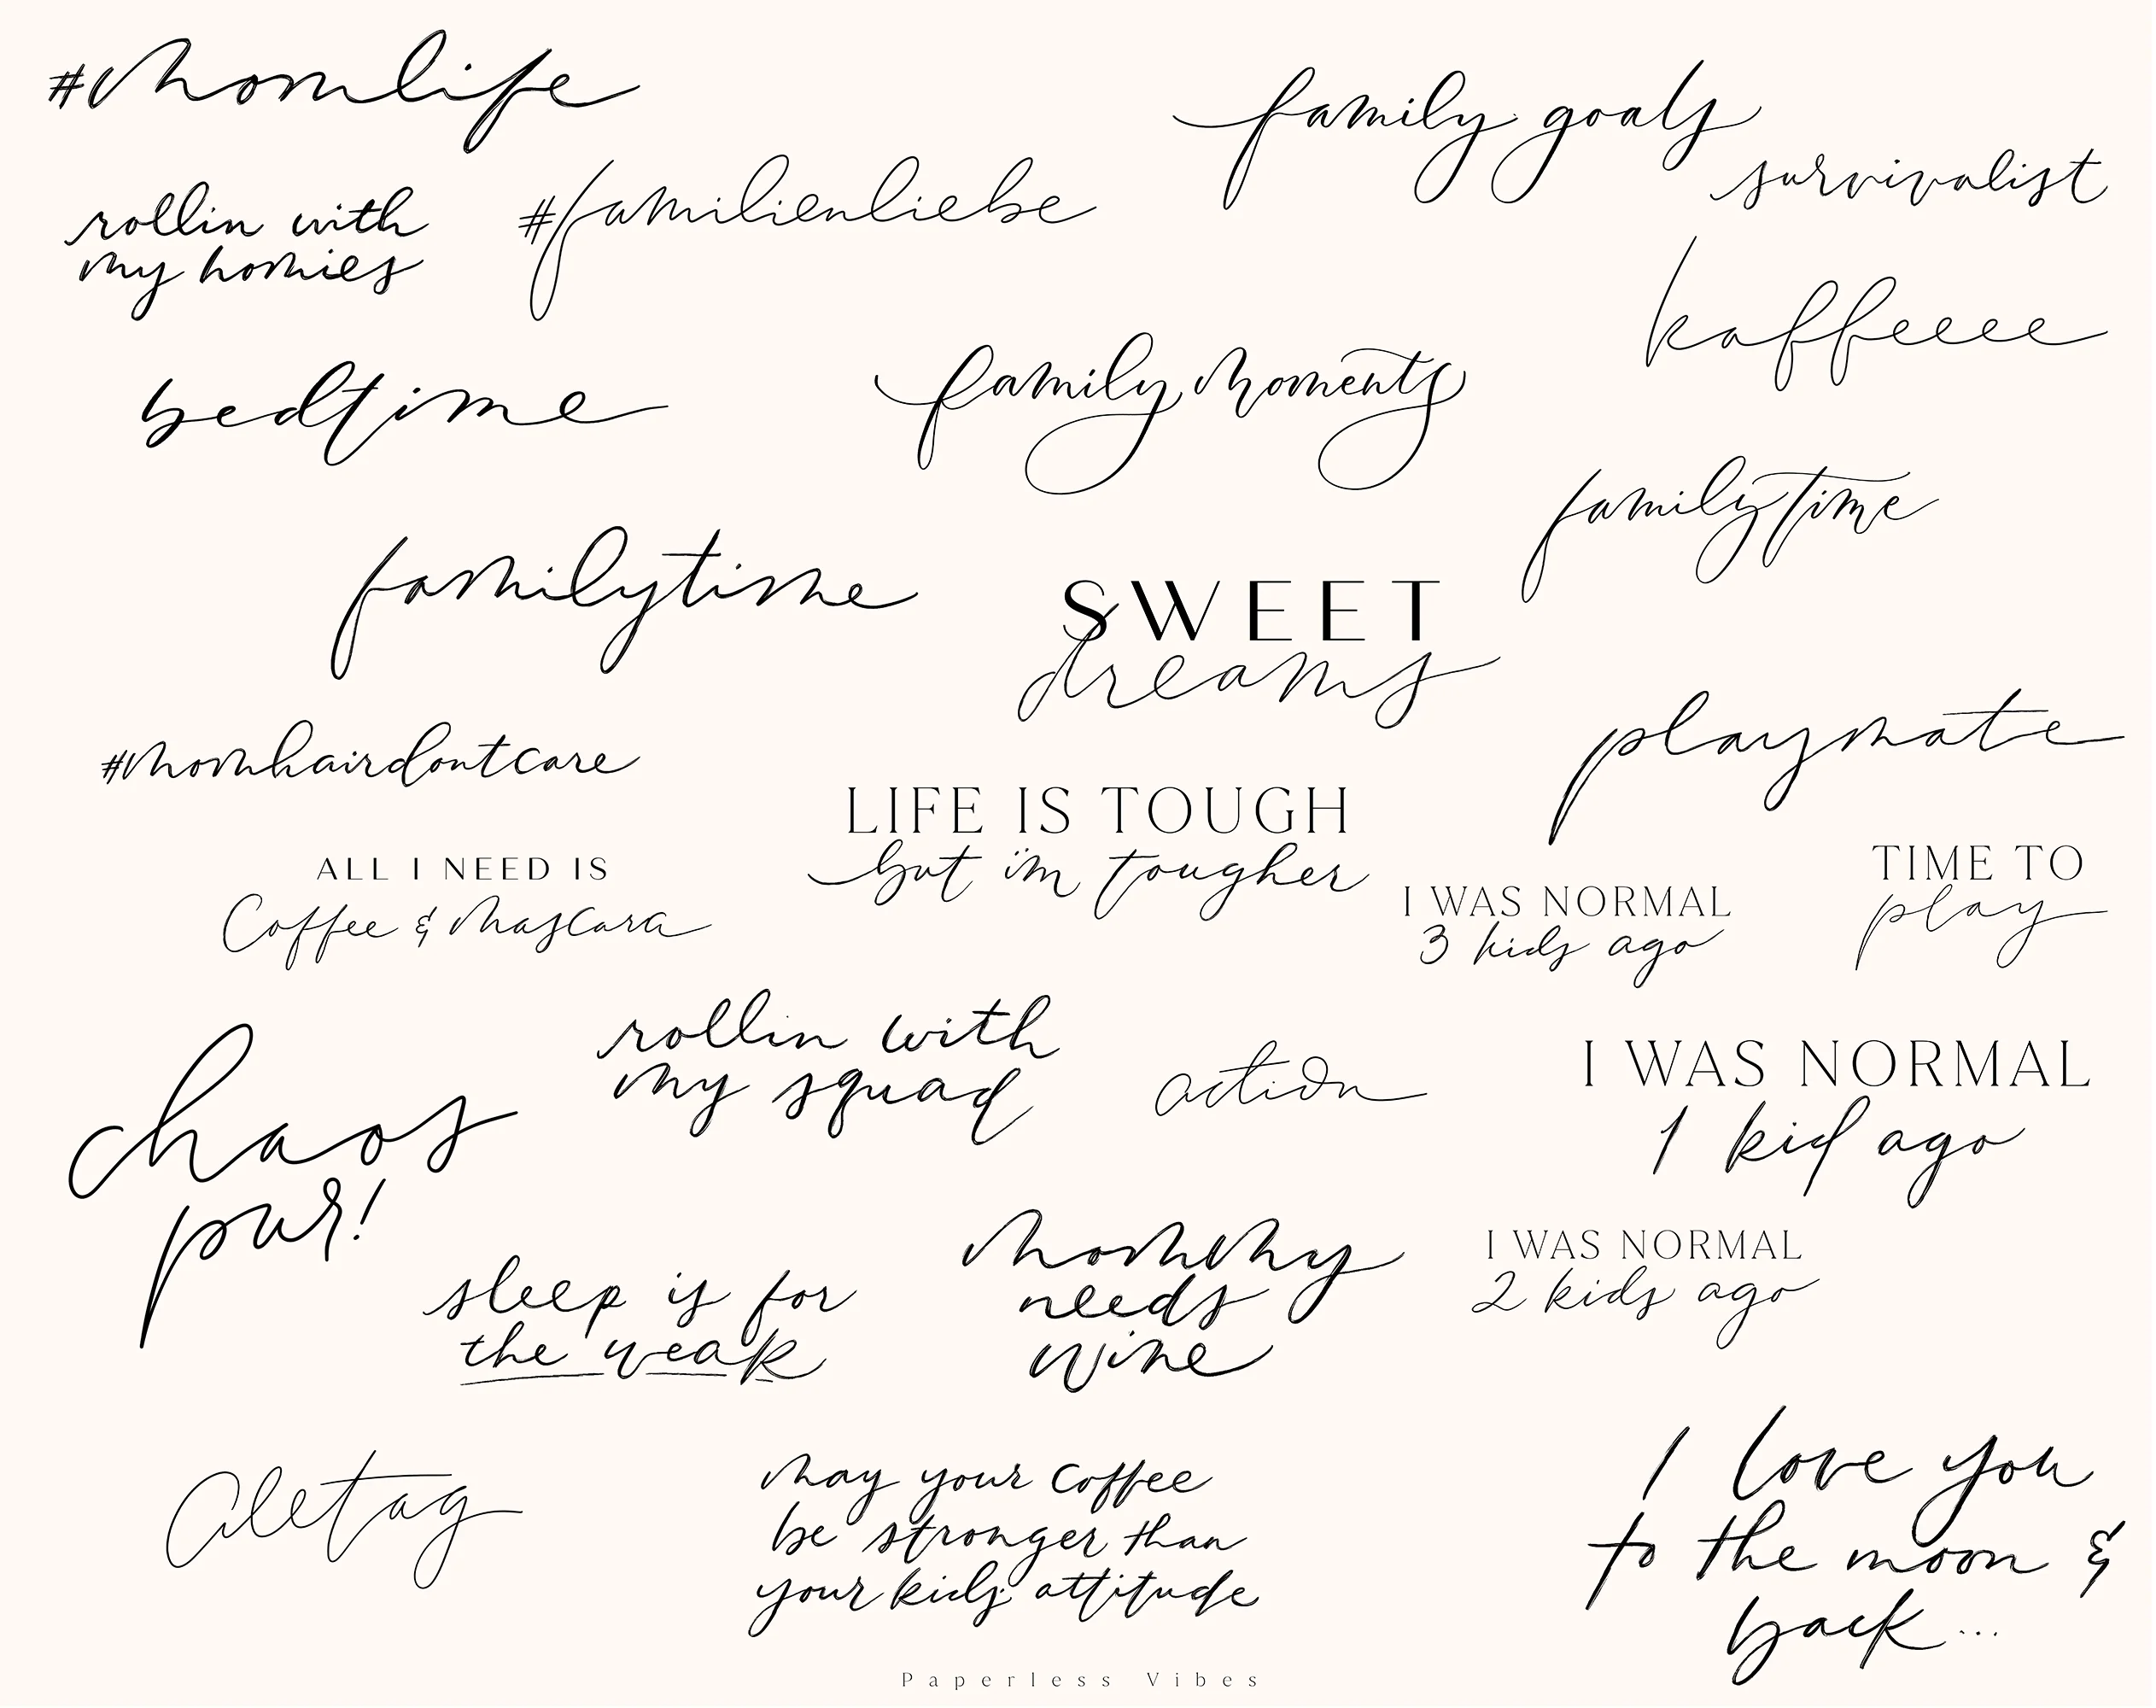 #momlife
family goals
survivalist
rollin with
my homies
#familienliebe
kaffeeee
bedtime
family moments
familytime
familytime
SWEET
dreams
playmate
#momhairdontcare
LIFE IS TOUGH
but i'm tougher
ALL I NEED IS
Coffee & Mascara
I WAS NORMAL
3 kids ago
TIME TO
play
rollin with
my squad
action
I WAS NORMAL
1 kid ago
chaos
pur!
mommy
needs
wine
I WAS NORMAL
2 kids ago
sleep is for
the weak
I love you
to the moon &
back...
may your coffee
be stronger than
your kids attitude
Paperless Vibes